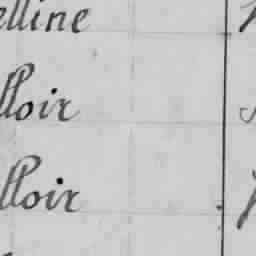 elline
lloir
lloir